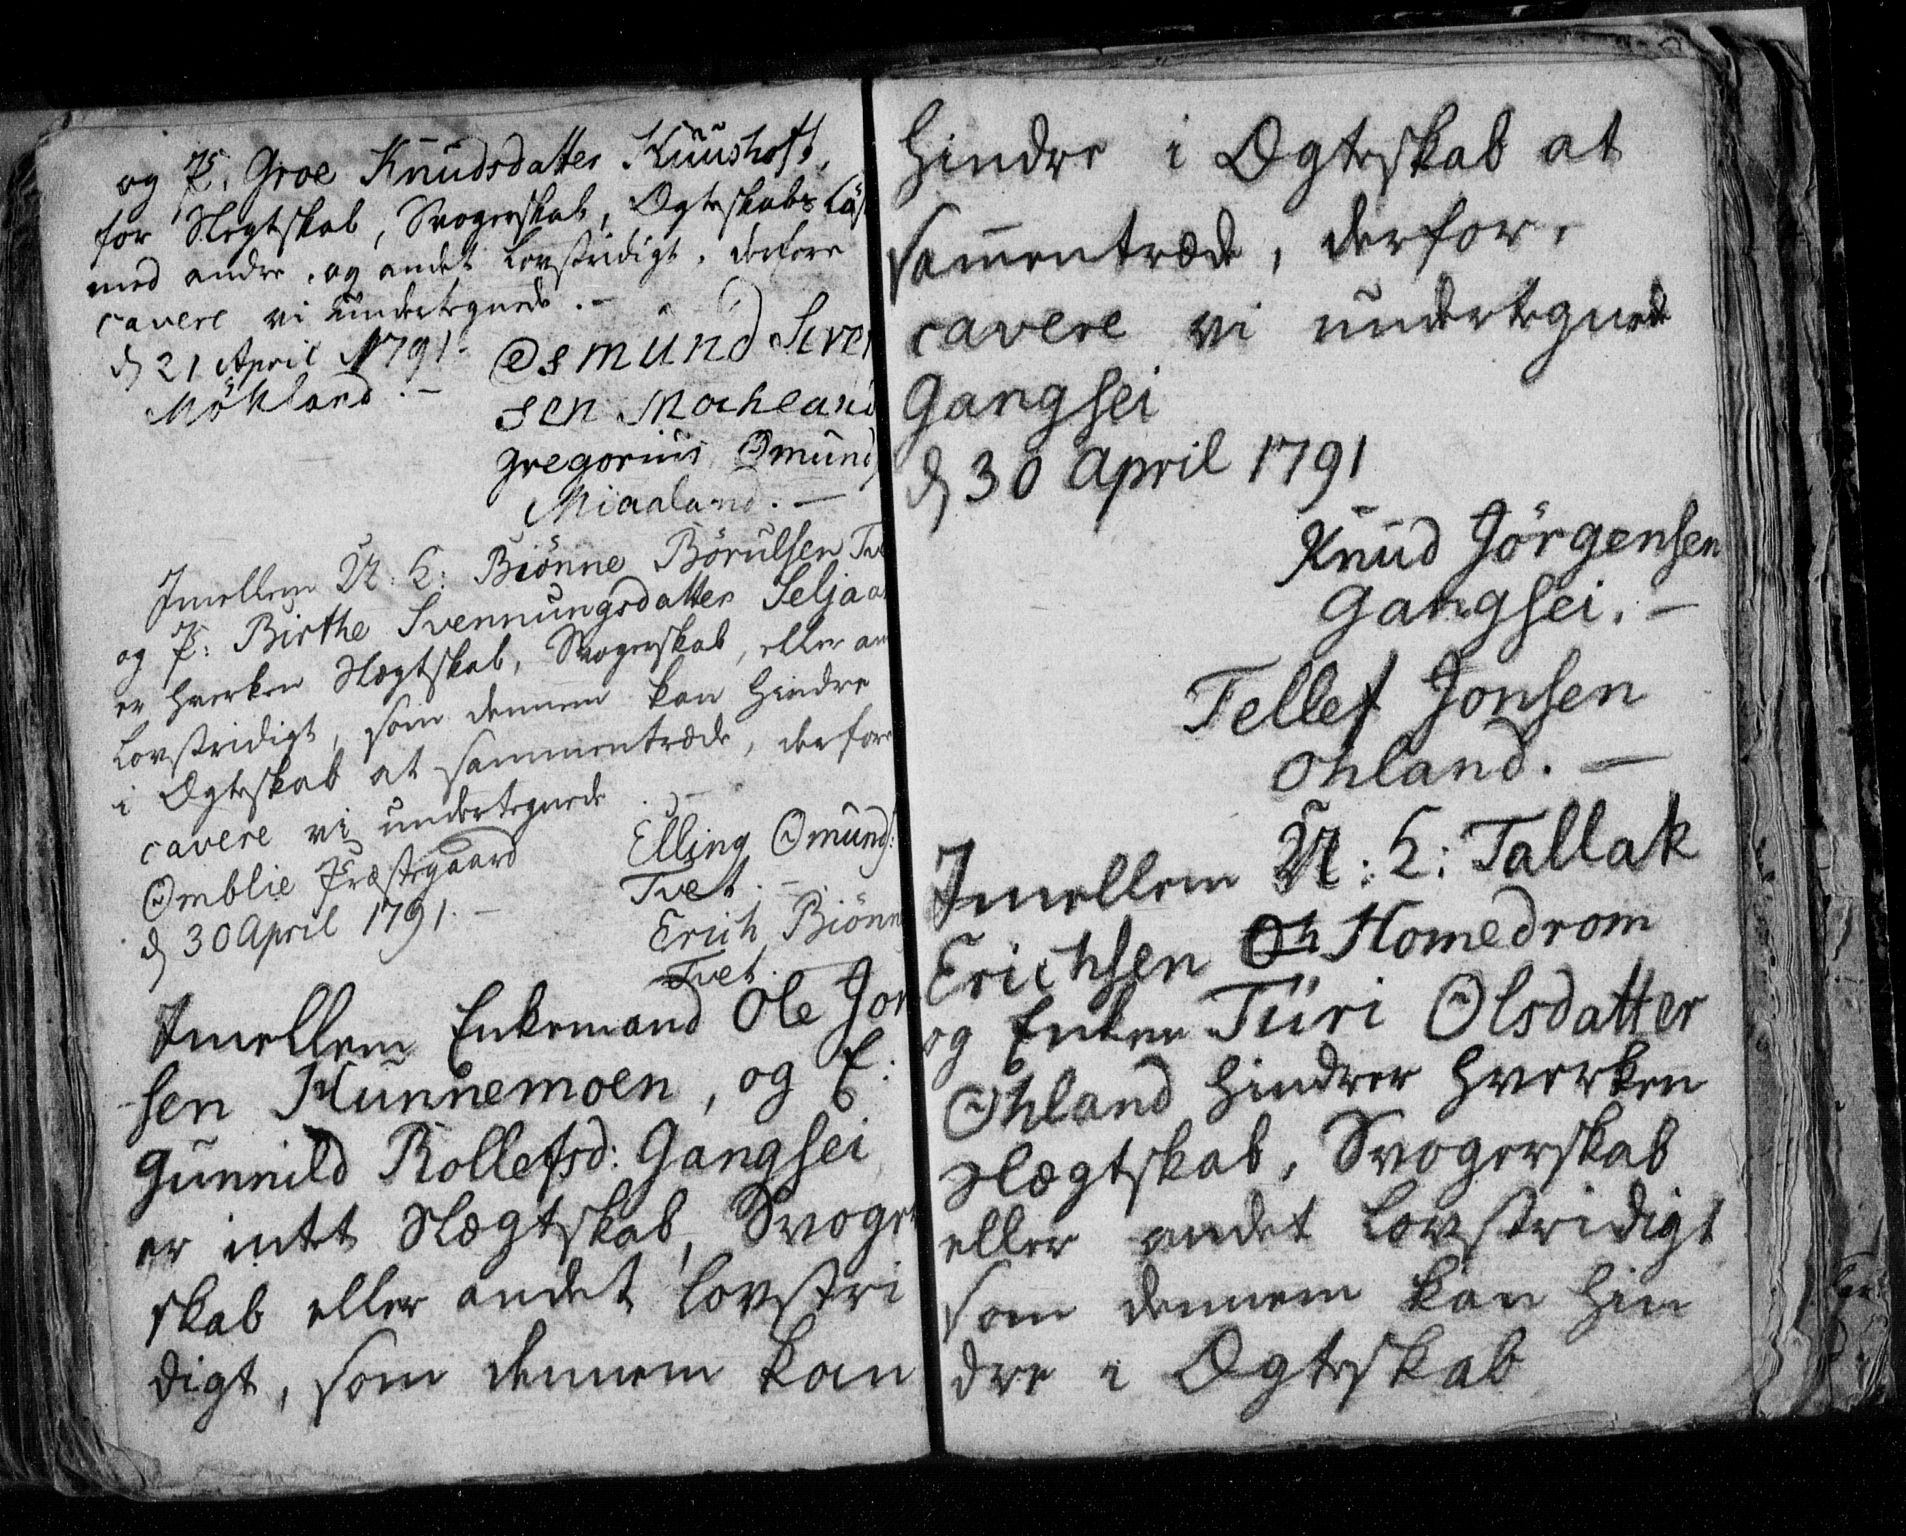 og P. Groe Knudsdatter Kuushoft,
for Slegtskab, Svogerskab, Ægteskabs Løf
med andre, og andet Lovstridigt, derfore
cavere vi undertegnede. –
d. 21 April 1791. Osmund Siver
Mökland. – sen Mochland
gregorius Omund
Miaaland. –
Imellem U: K: Biönne Börulsen Tve
og P: Birthe Svennungsdatter Seljaa
er hverken Slægtskab, Svogerskab, eller an
Lovstridigt, som dennem kan hindre
i Ægteskab at sammentræde, derfore
cavere vi undertegnede. –
Omblie Præstegaard Elling Omunds:
d. 30 April 1791. – Tvet. –
Erich Biönn
Tvet.
Imellem Enkemand Ole Jon
sen Hunnemoen, og E:
Gunnild Rollefsd: Gangsei
er intet Slægtskab, Svoger
skab eller andet lovstri
digt, som dennem kan
hindre i Ægteskab at
samentræde, derfor,
cavere vi undertegnede
Gangsei
d. 30 April 1791
Knud Jörgensen
Gangsei. –
Tellef Jonsen
Ohland. –
Imellem U: K: Tallak
Erichsen Oh Homedrom
og Enken Turi Olsdatter
Ohland hindrer hverken
Slægtskab, Svogerskab
eller andet lovstridigt
som dennem kan hin
dre i Ægteskab